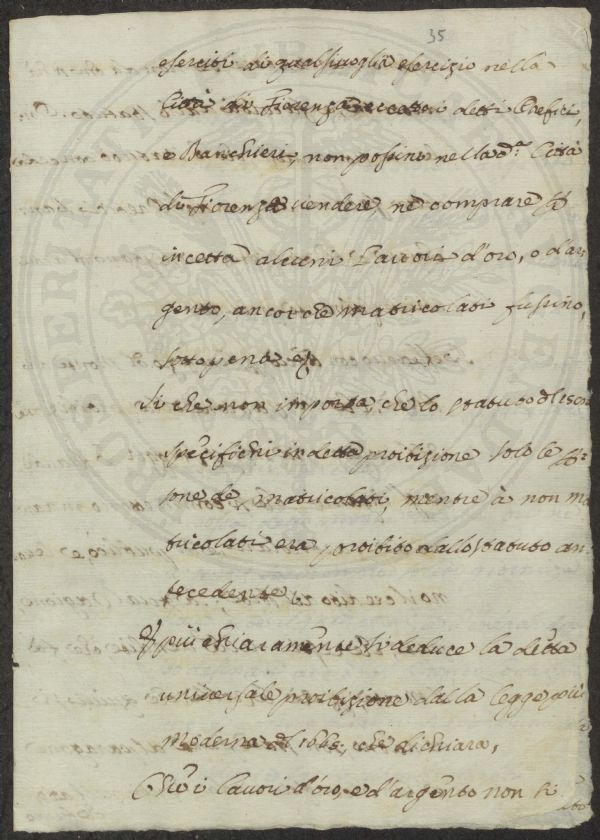 35
eserciti di qualsivoglia esercizio nella
Città di Fiorenza eccetto i detti Orefici,
e Banchieri, non possino nella d.ª Città
di Fiorenza vendere, nè comprare p
incetta alcuni Lavori d'oro, o d'ar
gento, ancorche matricolati fussino,
sotto pena
si che non importa, che lo statuto del
specifichi in detta proibizione solo le p̄
sone de matricolati, mentre à non ma
tricolati era proibito dallo statuto an
tecedente
E più chiaramente si deduce la detta
universale proibizione dalla legge più
moderna del che dichiara,
Che i lavori d'oro, e d'argento non si